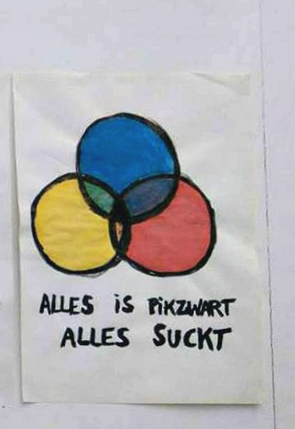 ALLES iS PiKZWART
ALLES SUCKT